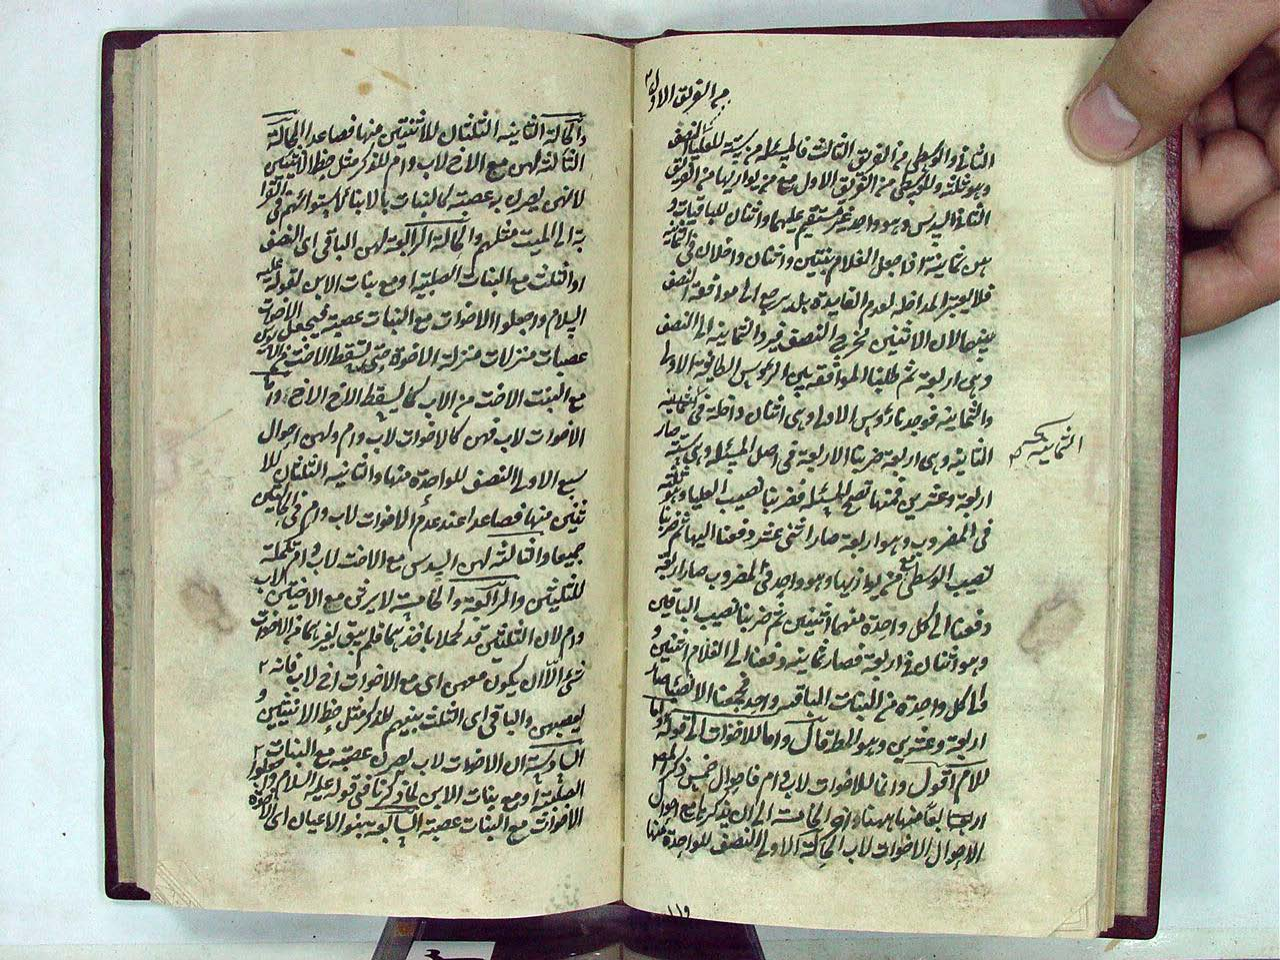 من الفريق الاول
الثانى والوسطى من الفريق الثالث فالمسئلة من ستة للعليا النصف
وهو ثلثة وللوسطى من الفريق الاول مع من يوازيها من الفريق
الثانى السدس وهو واحد غير مستقيم عليهما واثنان للباقيات و
هن ثمانية اذا جعل الغلام بنتين واثنان داخلان فى الثمانية
فلا يعتبر المداخلة لعدم الفايدة بل يرجع الى موافقة النصف
بينهما لان الاثنين مخرج النصف فيرد الثمانية الى النصف
وهى اربعة ثم طلبنا الموافقة بين الرؤس الطايفة الاولى
والثمانية فوجدنا رؤس الاولى وهى اثنان داخلة فى الثمانية
الثانية وهى اربعة ضربنا الاربعة فى اصل المسئلة وهى ستة صار
اربعة وعشرين فمنها تصح المسئلة فضربنا نصيب العليا وهو ثلثة
فى المضروب وهو اربعة صار اثنى عشر دفعنا اليها ثم ضربنا
نصيب الوسطى مع من يوازيها وهو واحد فى المضروب صار اربعة
دفعنا الى كل واحدة منهما اثنين ثم ضربنا نصيب الباقين
وهو اثنان فى اربعة فصار ثمانية دفعنا الى الغلام اثنين و
الى كل واحدة من البنات الباقية واحد فجمعنا الانصباء صار
اربعة وعشرين وهو المط قال واما للاخوات الى قوله واما
للام اقول واما للاخوات لاب وام فاحوال خمس ذكر المص
اربعا منها ههنا الخامسة الى ان يذكرها مع احوال
الاحوال الاخوات لاب الحالة الاولى النصف للواحدة منها
الثمانية
والحالة الثانية الثلثان للاثنتين منها فصاعدا الحالة
الثالثة لهن مع الاخ لاب وام للذكر مثل حظ الانثيين
لانهن يصرن به عصبة كالبنات بالابناء لاستوائهم فى القرا
بة الى الميت مثلهم والحالة الرابعة لهن الباقى اى النصف
او الثلث مع البنات الصلبية او مع بنات الابن لقوله عليه
السلام واجعلوا الاخوات مع البنات عصبة فيجعل الاخوات
عصبات منزلات منزلة الاخوة حتى تسقط الاخت
مع البنت الاخت من الاب كما يسقط الاخ الاخ واما
الاخوات لاب فهن كالاخوات لاب وام ولهن احوال
سبع الاولى النصف للواحدة منها والثانية الثلثان للا
ثنتين منها فصاعدا عند عدم الاخوات لاب وام فى الحالتين
جميعا والثالثة لهن السدس مع الاخت لاب وام تكملة
للثلثين والرابعة والخامسة لا يرثن مع الاختين لاب
وام لان الثلثين قد كملا باخذهما فلم يبق لغيرهما من الاخوات
شئ الا ان يكون معهن اى مع الاخوات اخ لاب فانه
يعصبهن والباقى اى الثلث بينهم للذكر مثل حظ الانثيين و
السادسة ان الاخوات لاب يصرن عصبة مع البنات
الصلبية او مع بنات الابن لما ذكرنا فى قوله عليه السلام واجعلوا
الاخوات مع البنات عصبة السابعة بنو الاعيان اى الاخوة